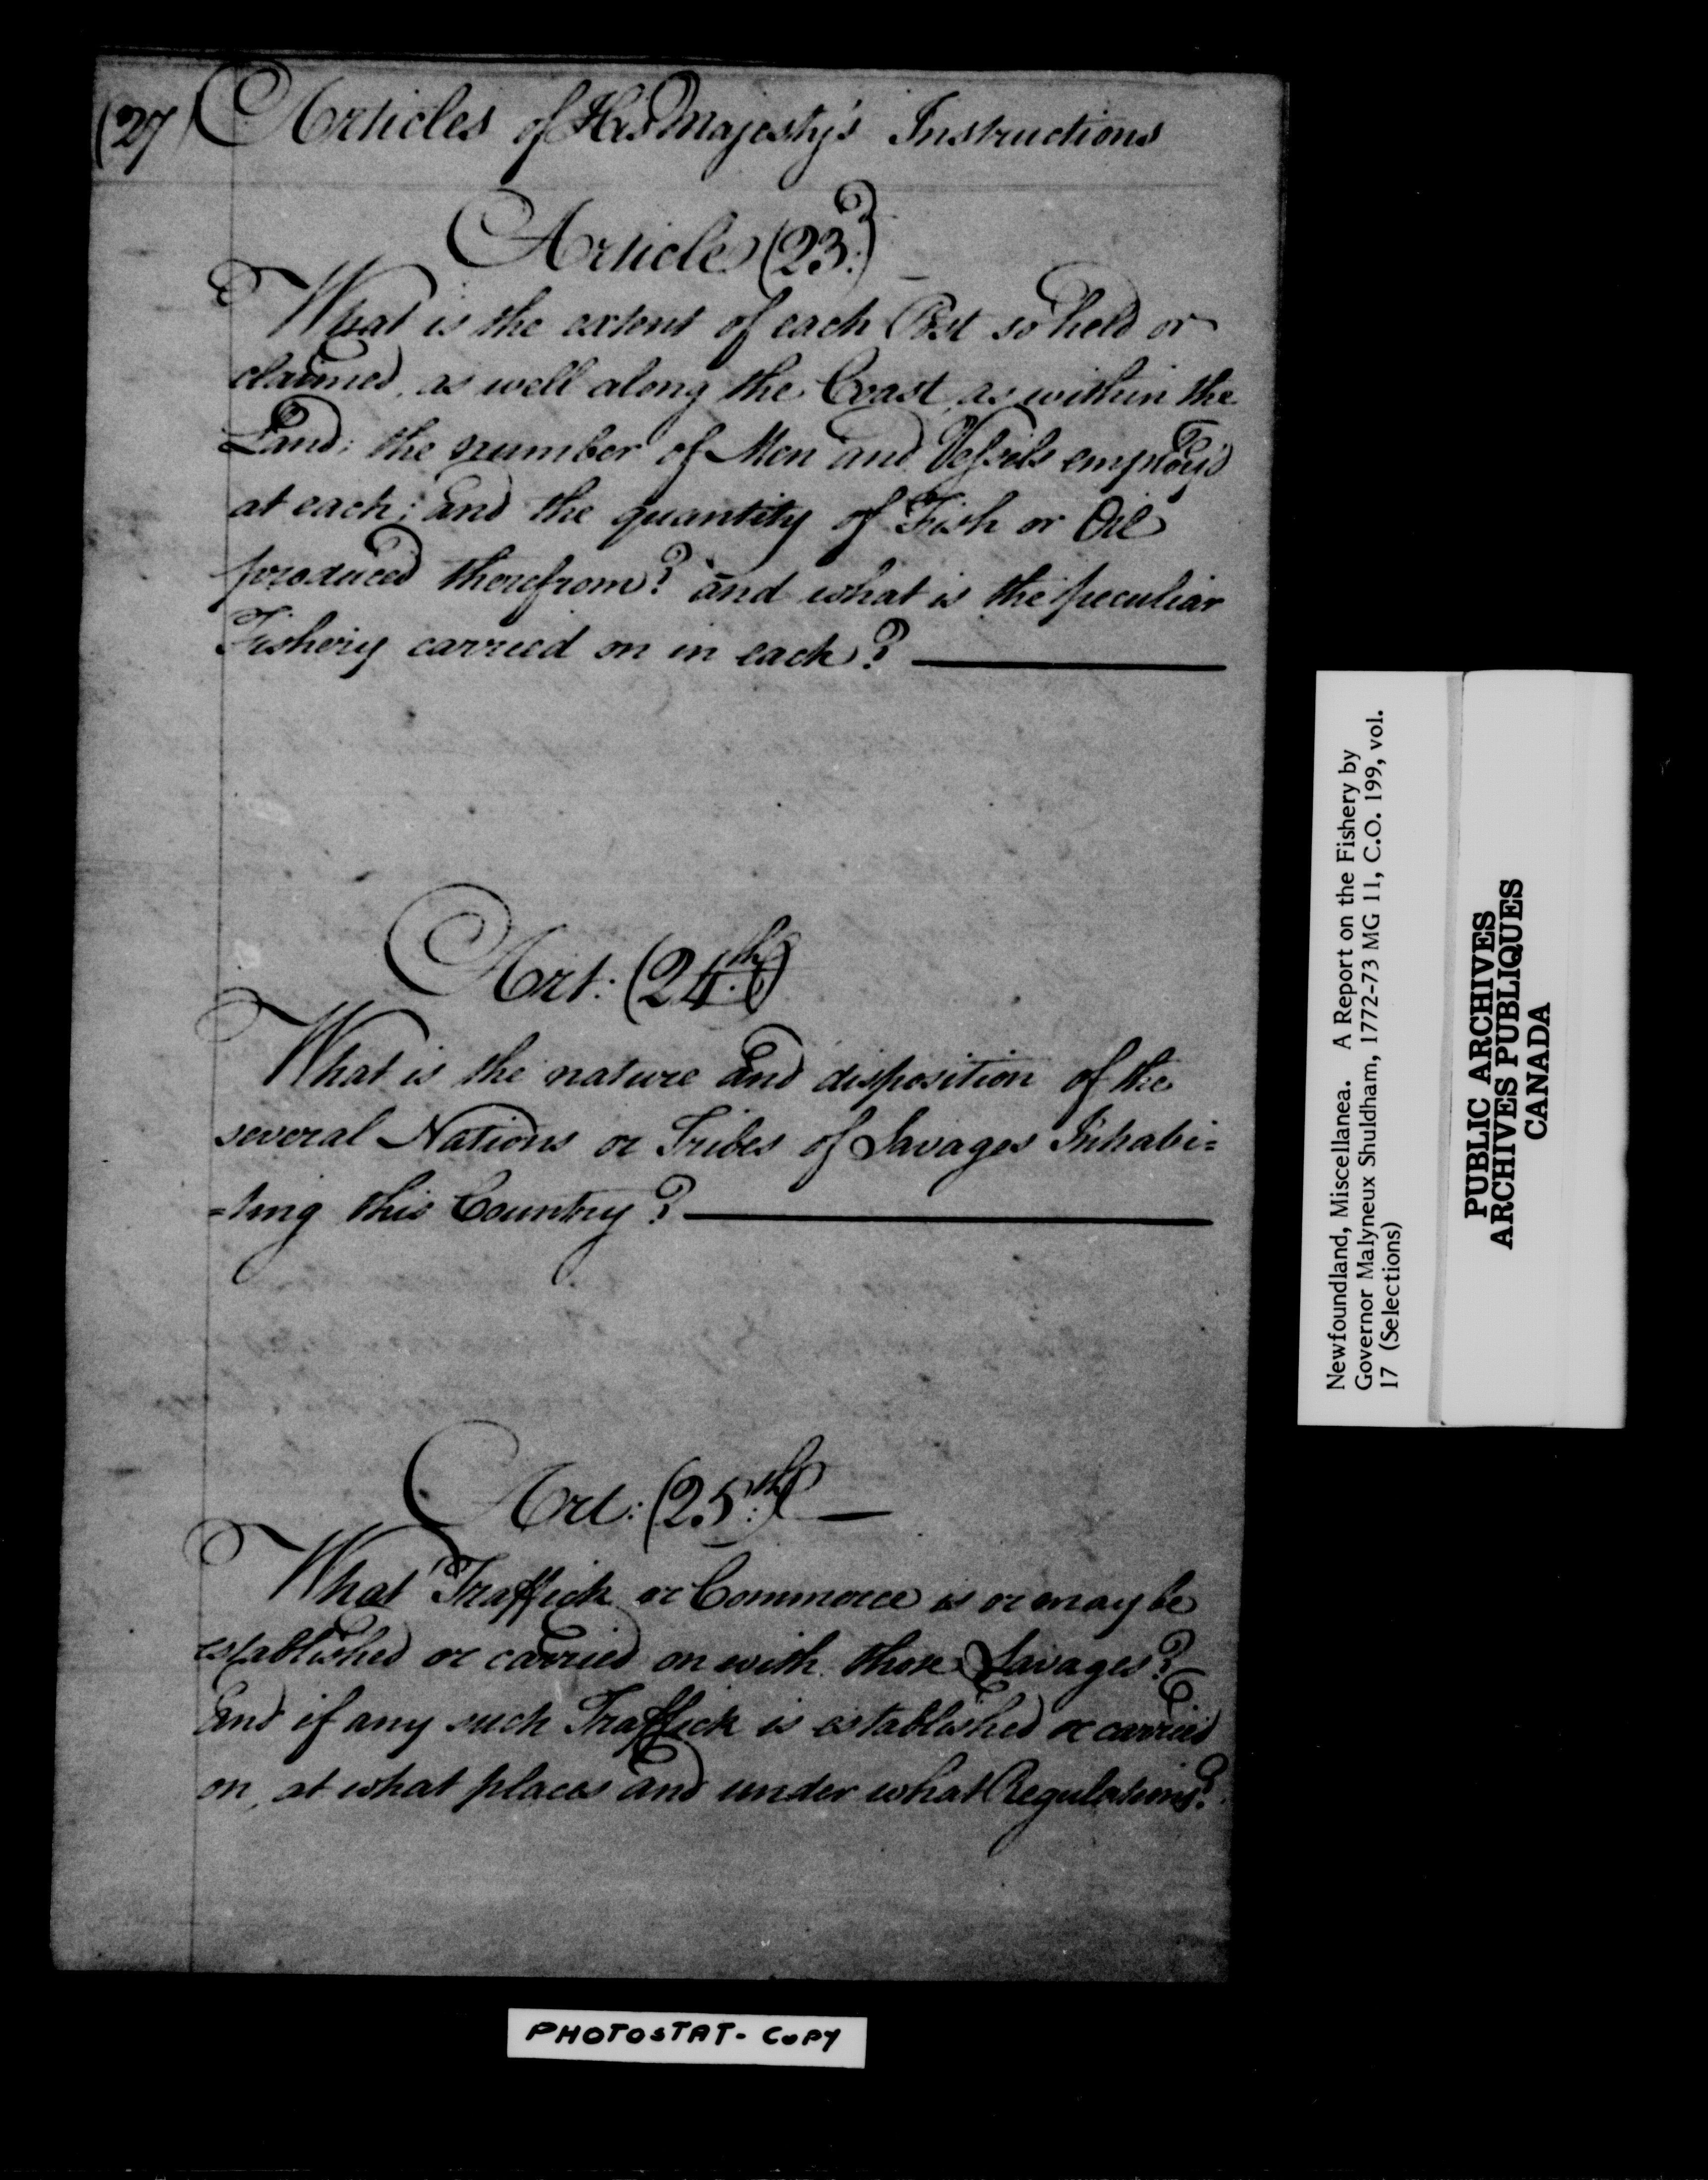 (27) Articles of His Majesty's Instructions
Article (23.d)
What is the extent of each Post so held or
claimed, as well along the Coast, as within the
Land; the number of Men and Vessels employ'd
at each; and the quantity of Fish or Oil
produced therefrom? and what is the peculiar
Fishery carried on in each?
Art: (24.th)
What is the nature and disposition of the
several Nations or Tribes of Savages Inhabi=
=ting this Country?
Art: (25.th)
What Traffick or Commerce is or may be
established or carried on with those Savages?
and if any such Traffick is established or carried
on, at what places and under what Regulations?
PHOTOSTAT- COPY
Newfoundland, Miscellanea. A Report on the Fishery by
Governor Malyneux Shuldham, 1772-73 MG 11, C.O. 199, vol.
17 (Selections)
PUBLIC ARCHIVES
ARCHIVES PUBLIQUES
CANADA